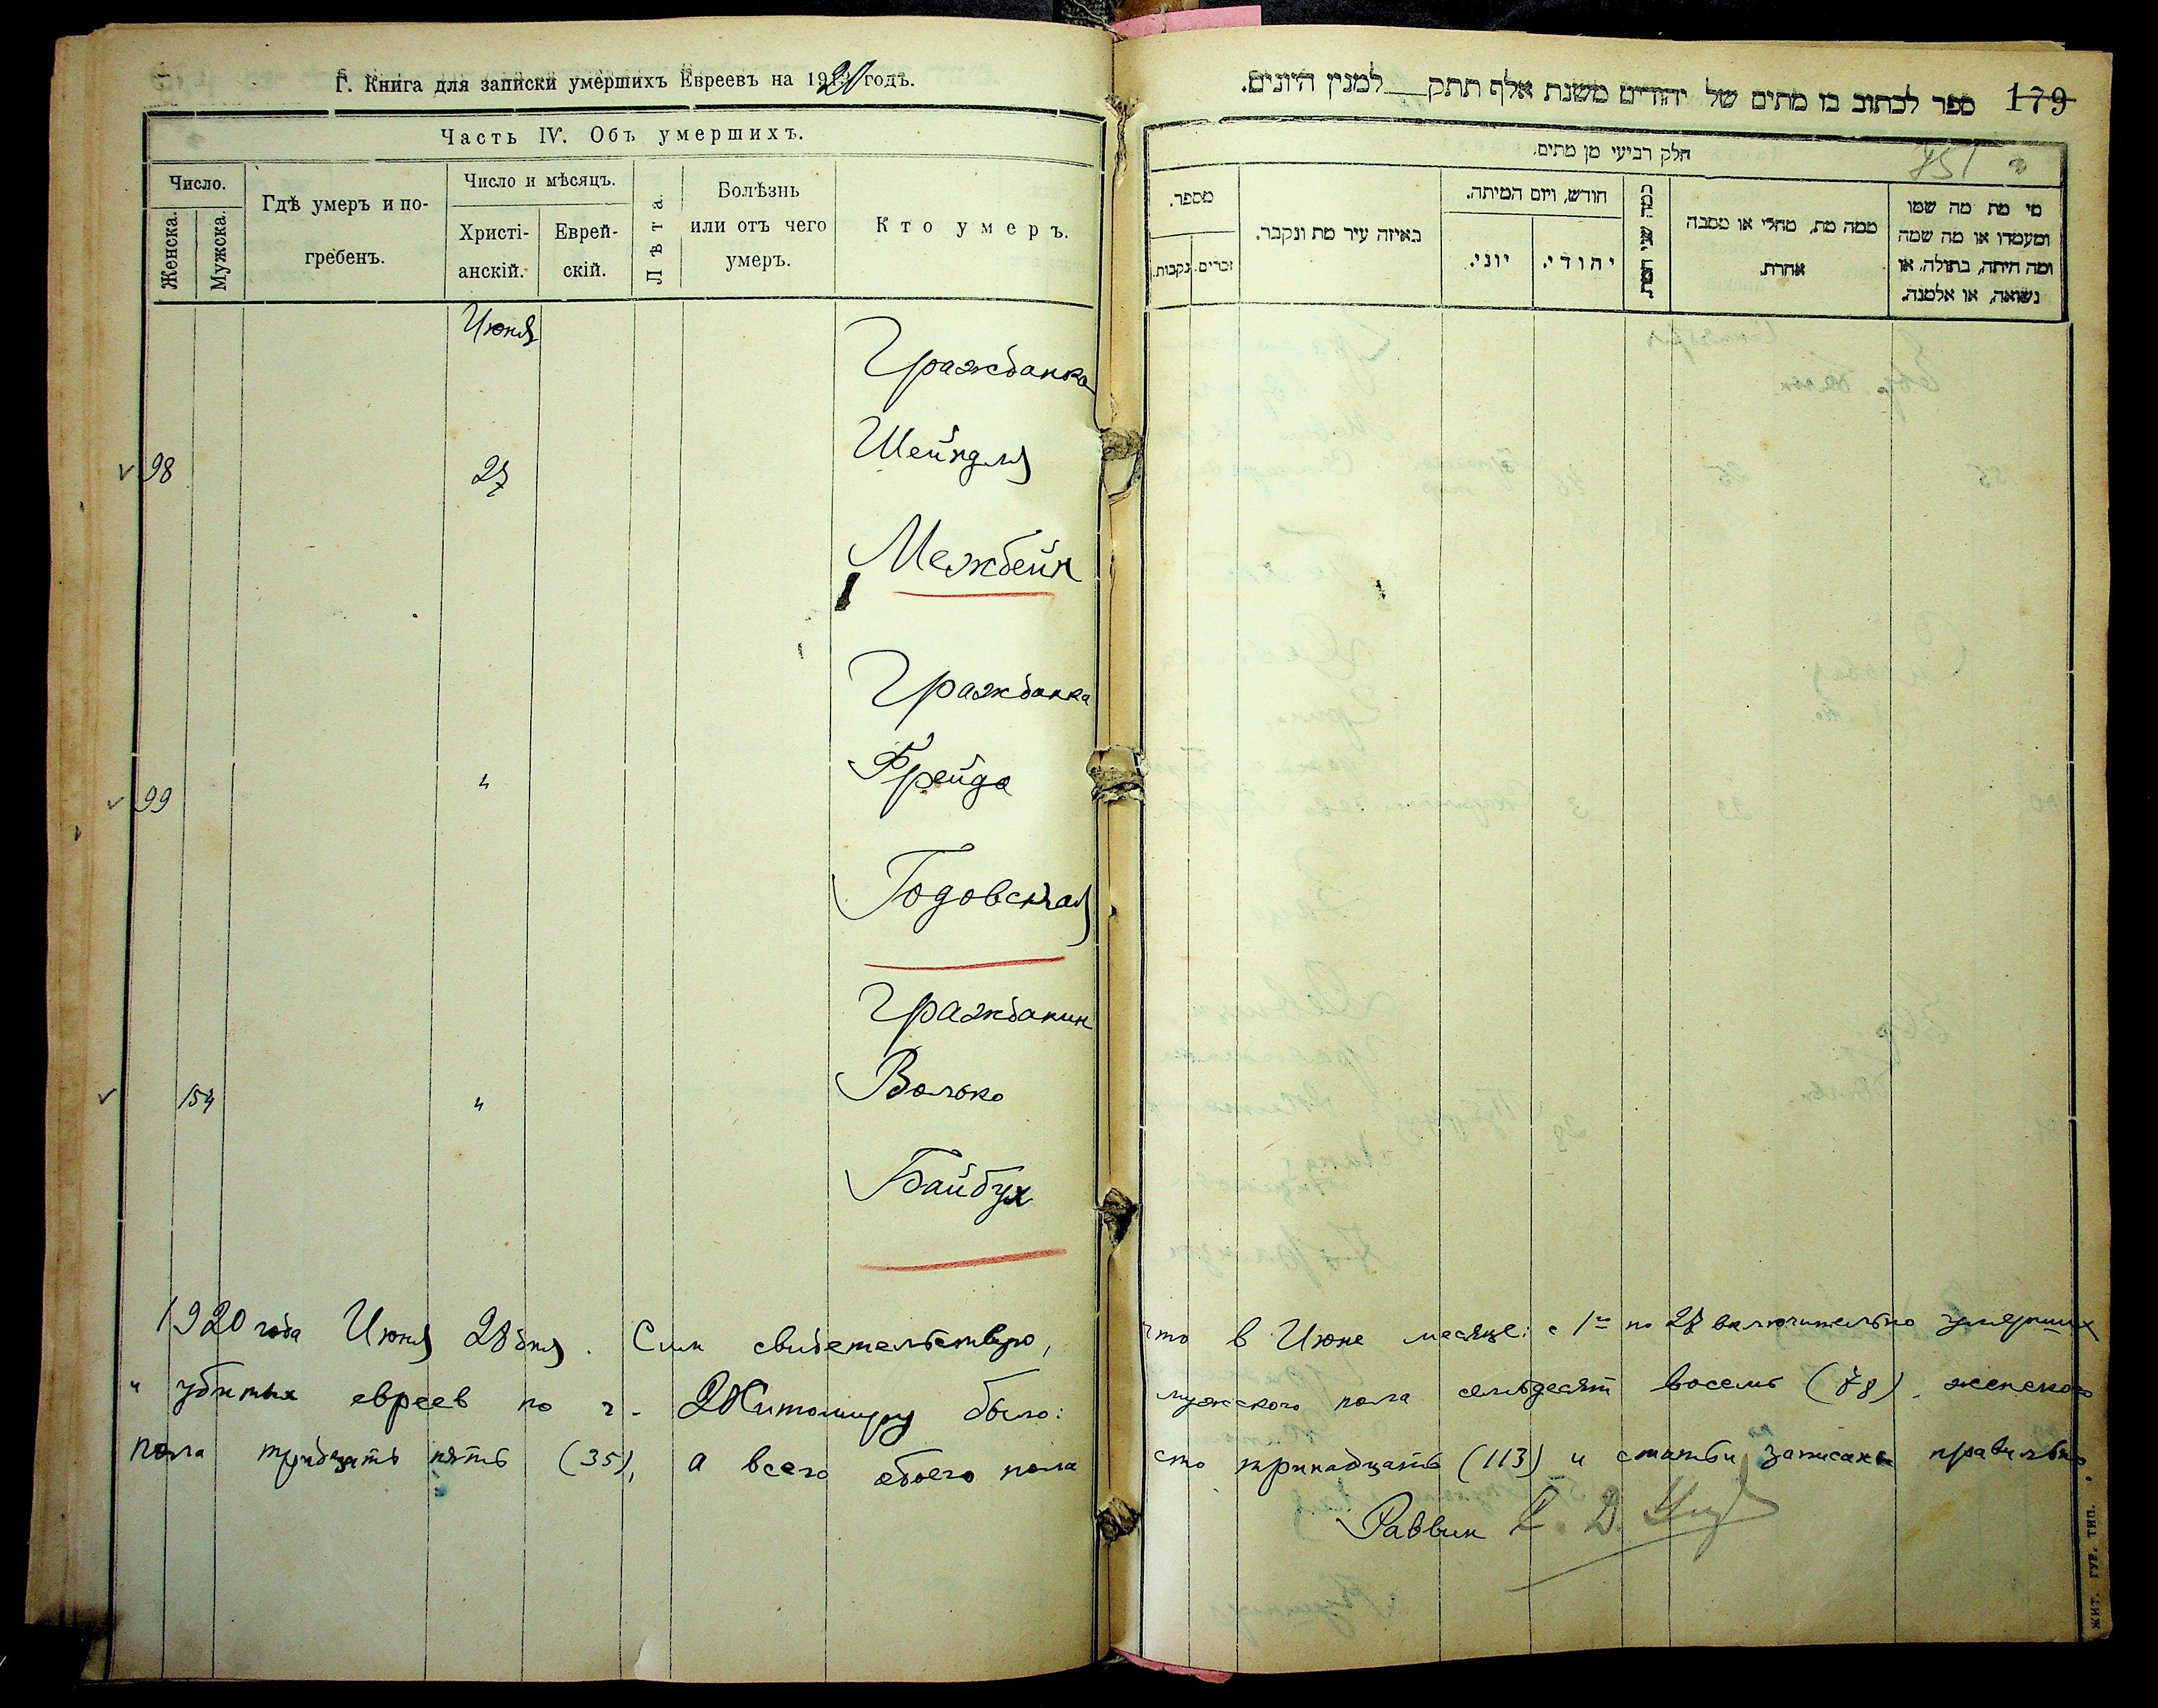 Г. Книга для записки умершихъ Евреевъ на 1920 годъ.
Часть IV. Объ умершихъ.
Число.
Женска.
Мужска.
Гдѣ умеръ и по-
гребенъ.
Число и мѣсяцъ.
Христі-
анскій.
Еврей-
скій.
Лѣта.
Болѣзнь
или отъ чего
умеръ.
Кто умеръ.
Июня
Гражданка
98
27
Шейндля
Межбейн
Гражданка
99
"
Фрейда
Годовская
Гражданин
154
"
Волько
Байбух
ספר לכתוב בו מתים של יהודים משנת אלף תתק__ למנין היונים.
179
חלק רביעי מן מתים.
מספר.
זכרים.
נקבות.
באיזה עיר מת ונקבר.
חודש, ויום המיתה.
יוני.
יהודי.
כמה שני המת.
ממה מת, מחלי או מסבה
אחרת.
מי מת מה שמו
ומעמדו או מה שמה
ומה היתה, בתולה, או
נשואה, או אלמנה.
1920 года Июня 28 дня. Сим свидетельствую, что в Июне месяце с 1го по 27 включительно умерших
и убитых евреев по г. Житомиру было: мужского пола семьдесят восемь (78), женского
пола тридцать пять (35), а всего обоего пола сто тринадцать (113) и статьи записаны правильно.
Раввин
ЖИТ. ГУБ. ТИП.